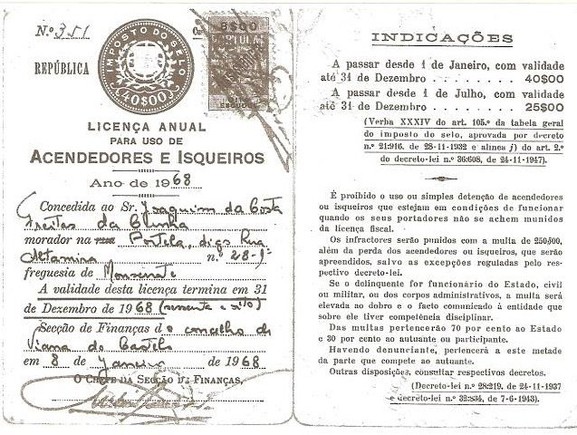 N.º 351
REPÚBLICA
IMPOSTO DO SELO
40$00
5$00
LICENÇA ANUAL
PARA USO DE
ACENDEDORES E ISQUEIROS
Ano de 1968
Concedida ao Sr. Joaquim da Costa
Freitas da Cunha
morador na Portela, digo Rua
Altamira n.º 28-1º
freguesia de Monserrate
A validade desta licença termina em 31
de Dezembro de 1968 (sessenta e oito)
Secção de Finanças do concelho de
Viana do Castelo
em 8 de Janeiro de 1968
O CHEFE DA SECÇÃO DE FINANÇAS,
INDICAÇÕES
A passar desde 1 de Janeiro, com validade
até 31 de Dezembro . . . . . . . 40$00
A passar desde 1 de Julho, com validade
até 31 de Dezembro . . . . . . . 25$00
(Verba XXXIV do art. 105.º da tabela geral
do imposto do selo, aprovada por decreto
n.º 21:916, de 28-11-1932 e alínea j) do art. 2.º
do decreto-lei n.º 36:608, de 24-11-1947).
É proibido o uso ou simples detenção de acendedores
ou isqueiros que estejam em condições de funcionar
quando os seus portadores não se achem munidos
da licença fiscal.
Os infractores serão punidos com a multa de 250$00,
além da perda dos acendedores ou isqueiros, que serão
apreendidos, salvo as excepções reguladas pelo res-
pectivo decreto-lei.
Se o delinquente for funcionário do Estado, civil
ou militar, ou dos corpos administrativos, a multa será
elevada ao dobro e o facto comunicado à entidade que
sobre ele tiver competência disciplinar.
Das multas pertencerão 70 por cento ao Estado
e 30 por cento ao autuante ou participante.
Havendo denunciante, pertencerá a este metade
da parte que compete ao autuante.
Outras disposições, consultar respectivos decretos.
(Decreto-lei n.º 28:219, de 24-11-1937
e decreto-lei n.º 32:834, de 7-6-1943).